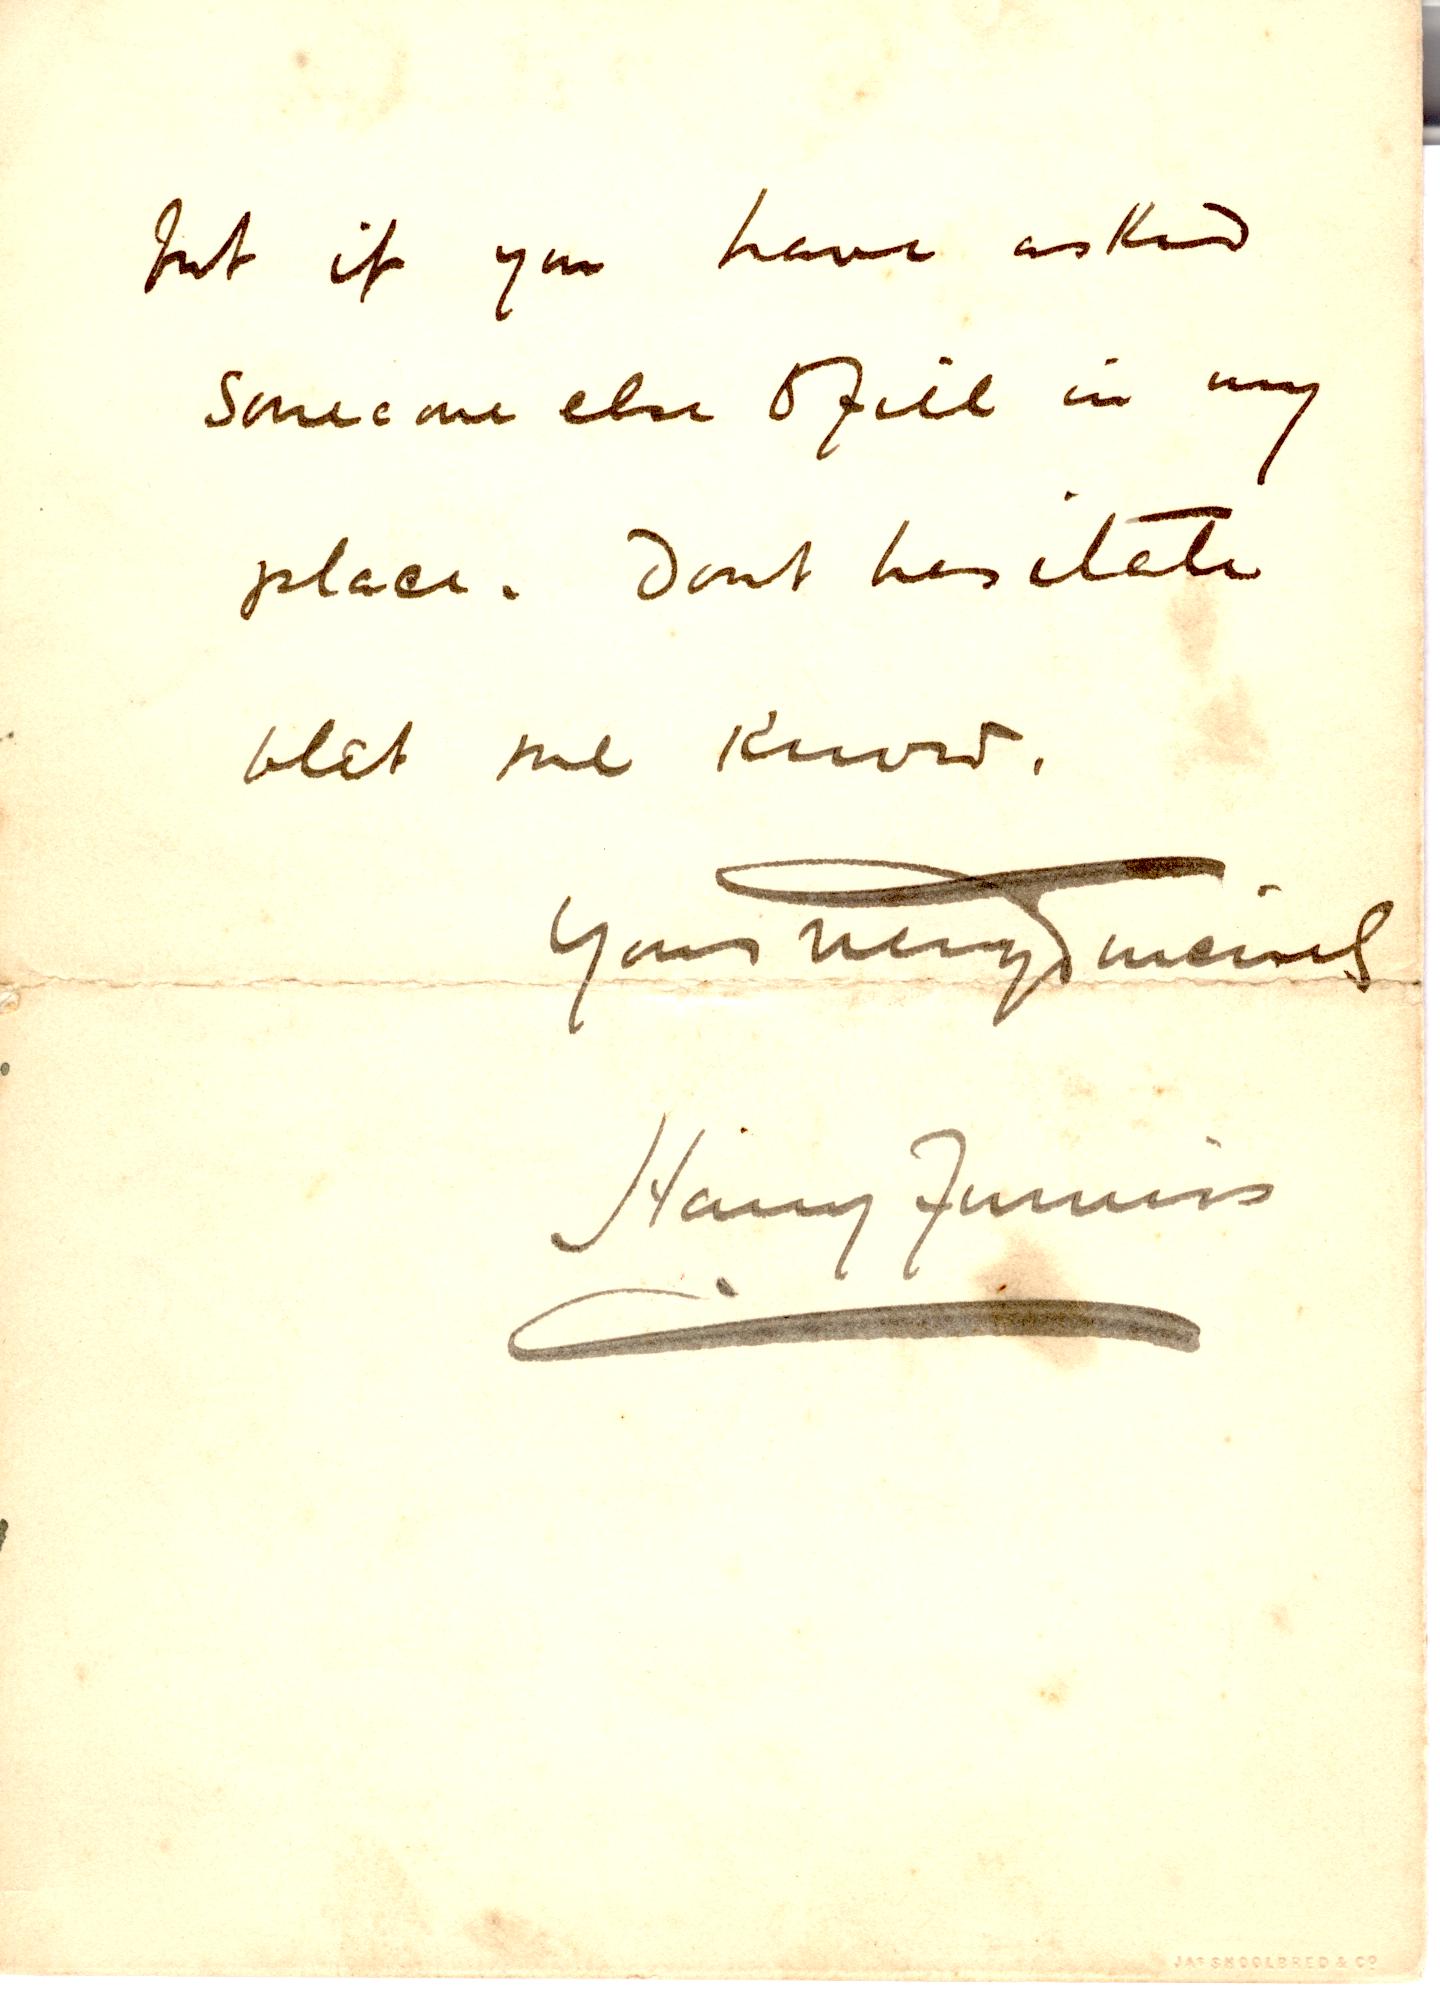 but if you have asked
someone else to fill in my
place. Dont hesitate
to let me know.
Yours very sincerely
Harry Furniss
JAS SHOOLBRED & CO